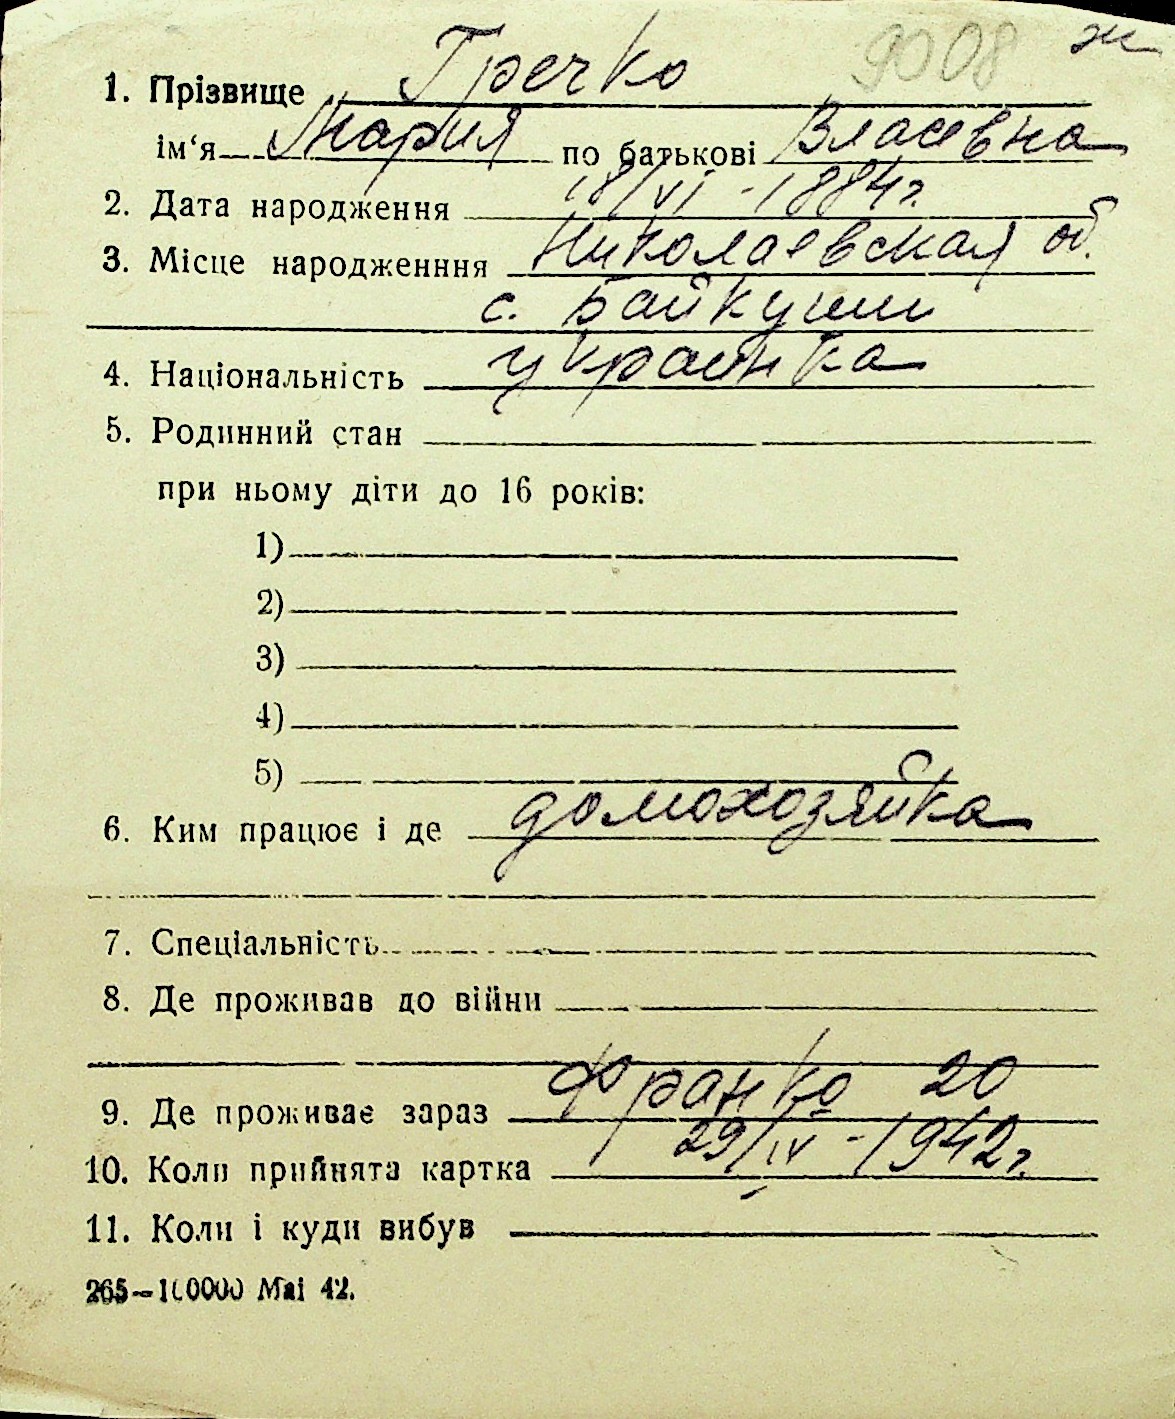 9008 ж
1. Прізвище Гречко
ім‘я Мария по батькові Власевна
2. Дата народження 18/VI - 1884 г.
3. Місце народженння Николаевская об.
с. Байкуши
4. Національність украинка
5. Родинний стан
при ньому діти до 16 років:
1)
2)
3)
4)
5)
6. Ким працює і де домохозяйка
7. Спеціальність
8. Де проживав до війни
9. Де проживає зараз Франко 20
10. Коли прийнята картка 29/IV - 1942 г.
11. Коли і куди вибув
265–100000 Mai 42.